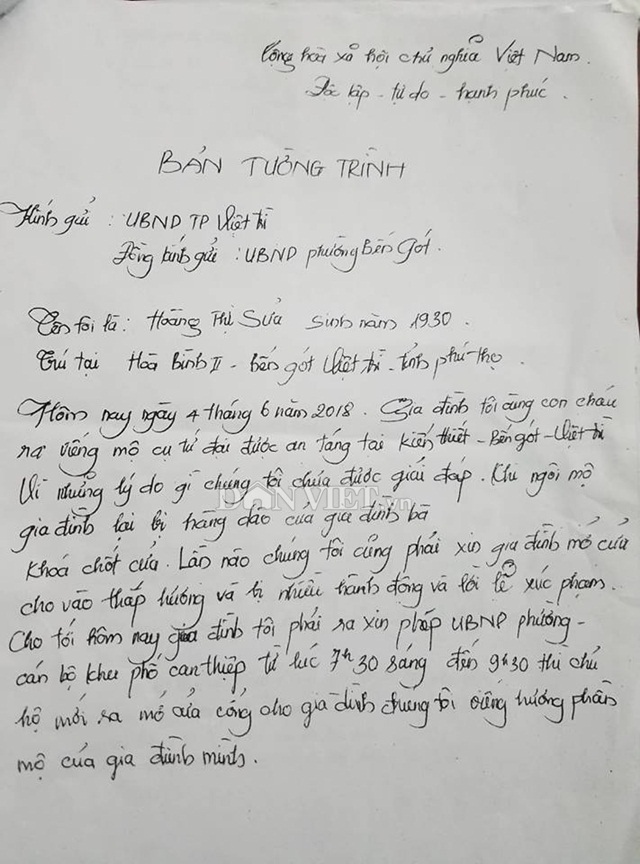 Cộng hoà xã hội chủ nghĩa Việt Nam.
Độc lập - tự do - hạnh phúc.
BẢN TƯỜNG TRÌNH
Kính gửi : UBND TP Việt trì
Đồng kính gửi : UBND phường Bến Gót.
Tên tôi là : Hoàng Thị Sửa sinh năm 1930.
Trú tại Hoà Bình II - Bến gót Việt trì - tỉnh phú-thọ.
Hôm nay ngày 4 tháng 6 năm 2018. Gia đình tôi cùng con cháu
ra viếng mộ cụ tứ đại được an táng tại Kiến thiết - Bến gót - Việt trì
Vì những lý do gì chúng tôi chưa được giải đáp. Khu ngôi mộ
DANVIET.vn
gia đình lại bị hàng dào của gia đình bà
khoá chốt cửa. Lần nào chúng tôi cũng phải xin gia đình mở cửa
cho vào thắp hương và bị nhiều hành động và lời lẽ xúc phạm.
Cho tới hôm nay gia đình tôi phải ra xin phép UBNP phường -
cán bộ khu phố can thiệp từ lúc 7h30 sáng đến 9h30 thì chủ
hộ mới ra mở cửa cổng cho gia đình chúng tôi viếng hương phần
mộ của gia đình mình.